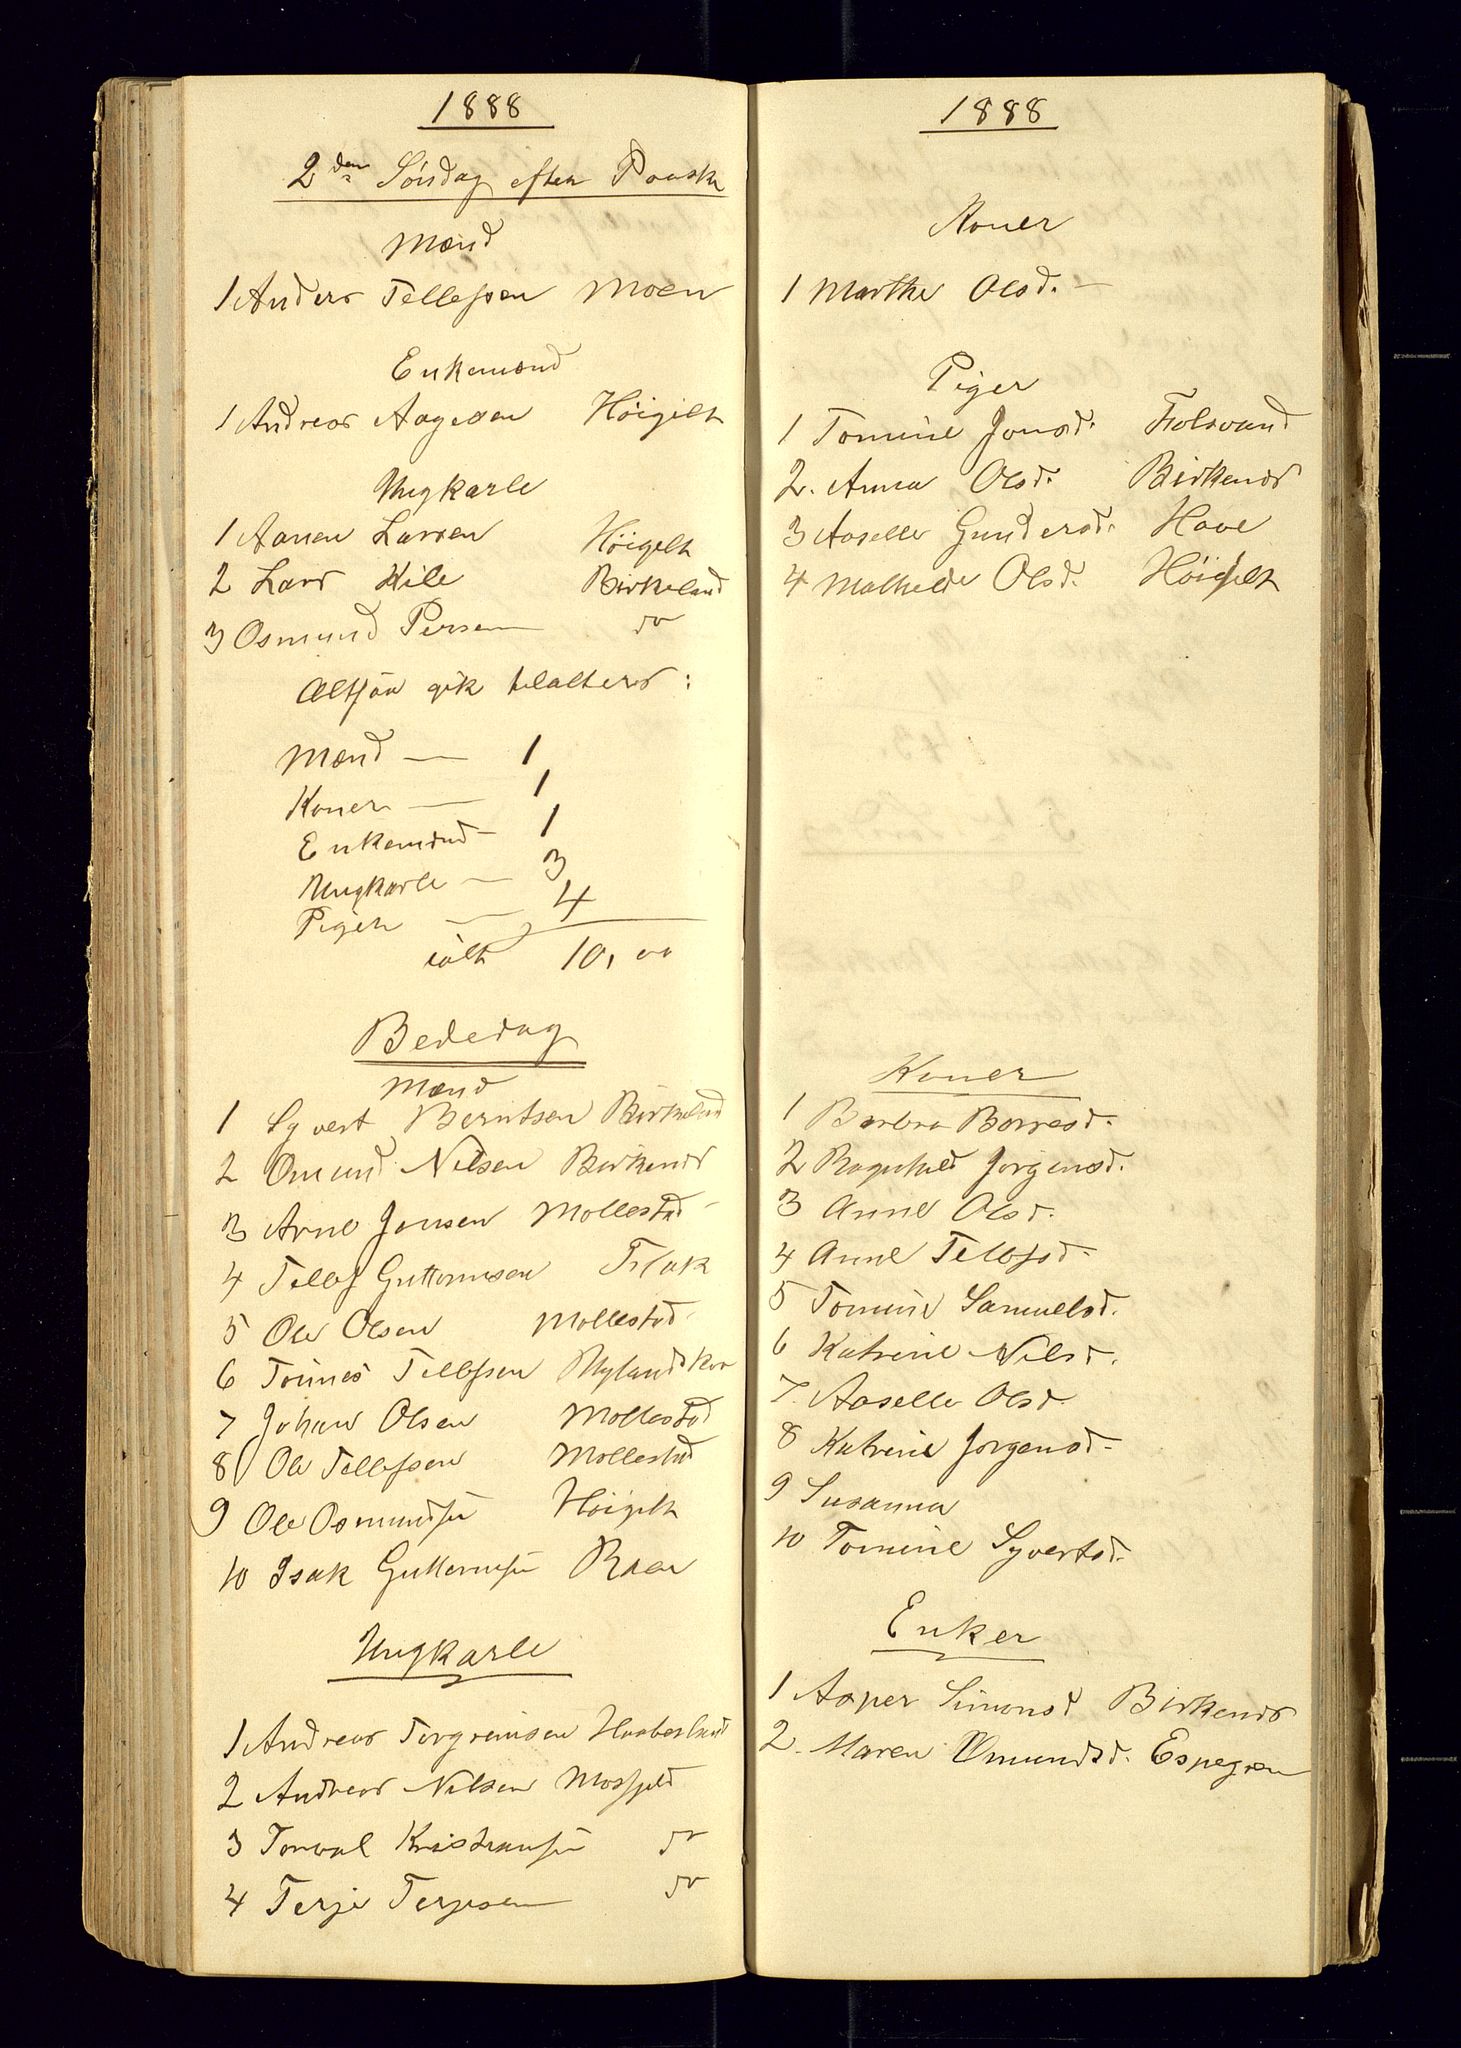 1888
2den Søndag efter Paaske
Mænd
1 Anders Tellefsen Moen
Enkemænd
1 Andreas Aagesen Höigilt
Ungkarle
1 Aanen Larsen Höigilt
2 Lars Kile Birkeland
3 Osmund Persen do
Altsaa gik tilalters:
Mænd — 1
Koner — 1
Enkemænd — 1
Ungkarle — 3
Piger — 4
ialt 10,
Bededag
Mænd
1 Syvert Berntsen Birkeland
2 Omund Nilsen Birkenes
3 Arne Jensen Mollestad
4 Tellef Guttormsen Flak
5 Ole Olsen Mollestad
6 Tönnes Tellefsen
7 Johan Olsen Mollestad
8 Ole Tellefsen Mollestad
9 Ole Osmundsen Höigilt
10 Isak Guttormsen
Ungkarle
1 Andreas Torgrimsen Haabesland
2 Andreas Nilsen Mosfjeld
3 Torval Kristiansen do
4 Terje Terjesen do
1888
Koner
1 Marthe Olsd. —
Piger
1 Tomine Jonsd. Fidsvand
2. Anna Olsd. Birkenes
3 Aaselle Gundersd. Hove
4 Mathilde Olsd. Höigilt
Koner
1 Barbro Borresd.
2 Ragnhild Jörgensd.
3 Anne Olsd.
4 Anne Tellefsd.
5 Tomine Samuelsd.
6 Katrine Nilsd.
7. Aaselle Olsd.
8 Katrine Jorgensd.
9 Susanna
10 Tomine Syvertsd.
Enker
1 Asper Simonsd Birkenes
2. Maren Omundsd. Espegren